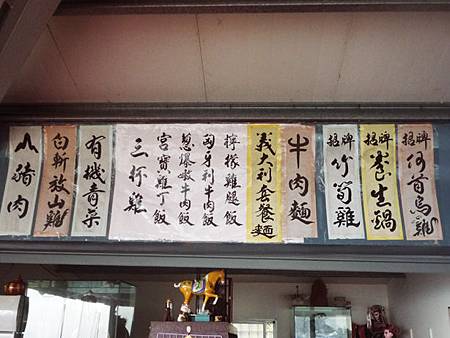 招牌何首烏雞
招牌養生鍋
招牌竹筍雞
牛肉麵
義大利套餐麵
檸檬雞腿飯
匈牙利牛肉飯
蔥爆嫩牛肉飯
宮寶雞丁飯
三杯雞
有機青菜
白斬放山雞
山豬肉